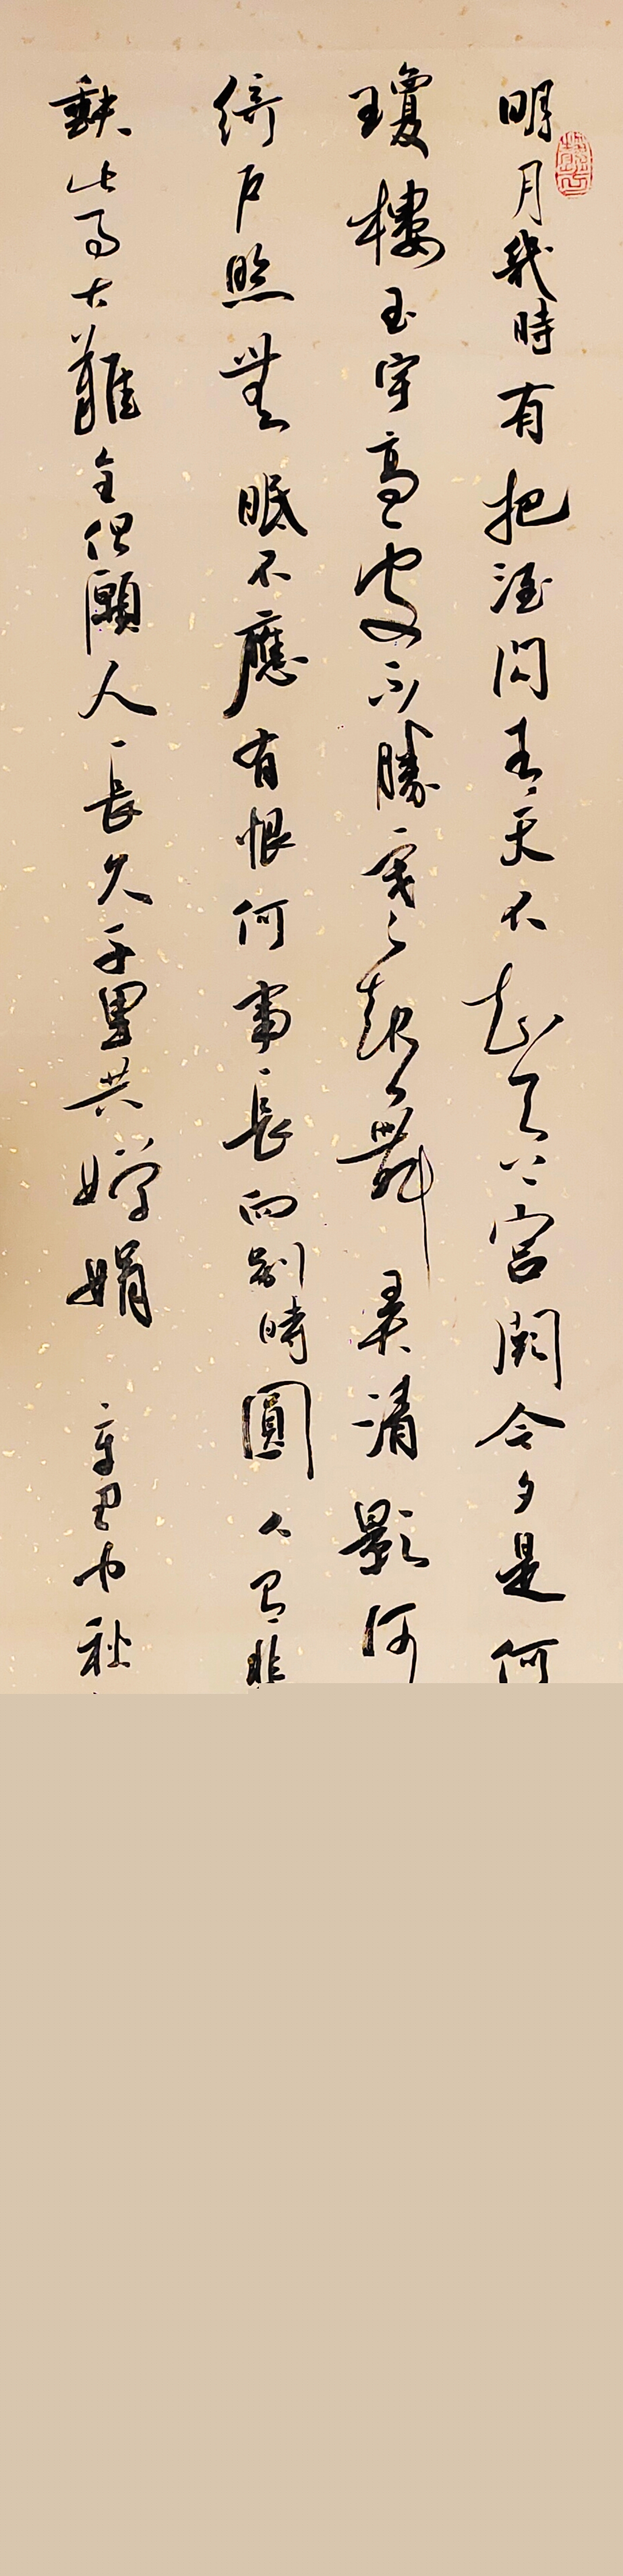 明月幾時有把酒問青天不知天上宮闕今夕是何
瓊樓玉宇高處不勝寒起舞弄清影何
綺戶照無眠不應有恨何事長向別時圓人有悲
缺此事古難全但願人長久千里共嬋娟 辛丑中秋